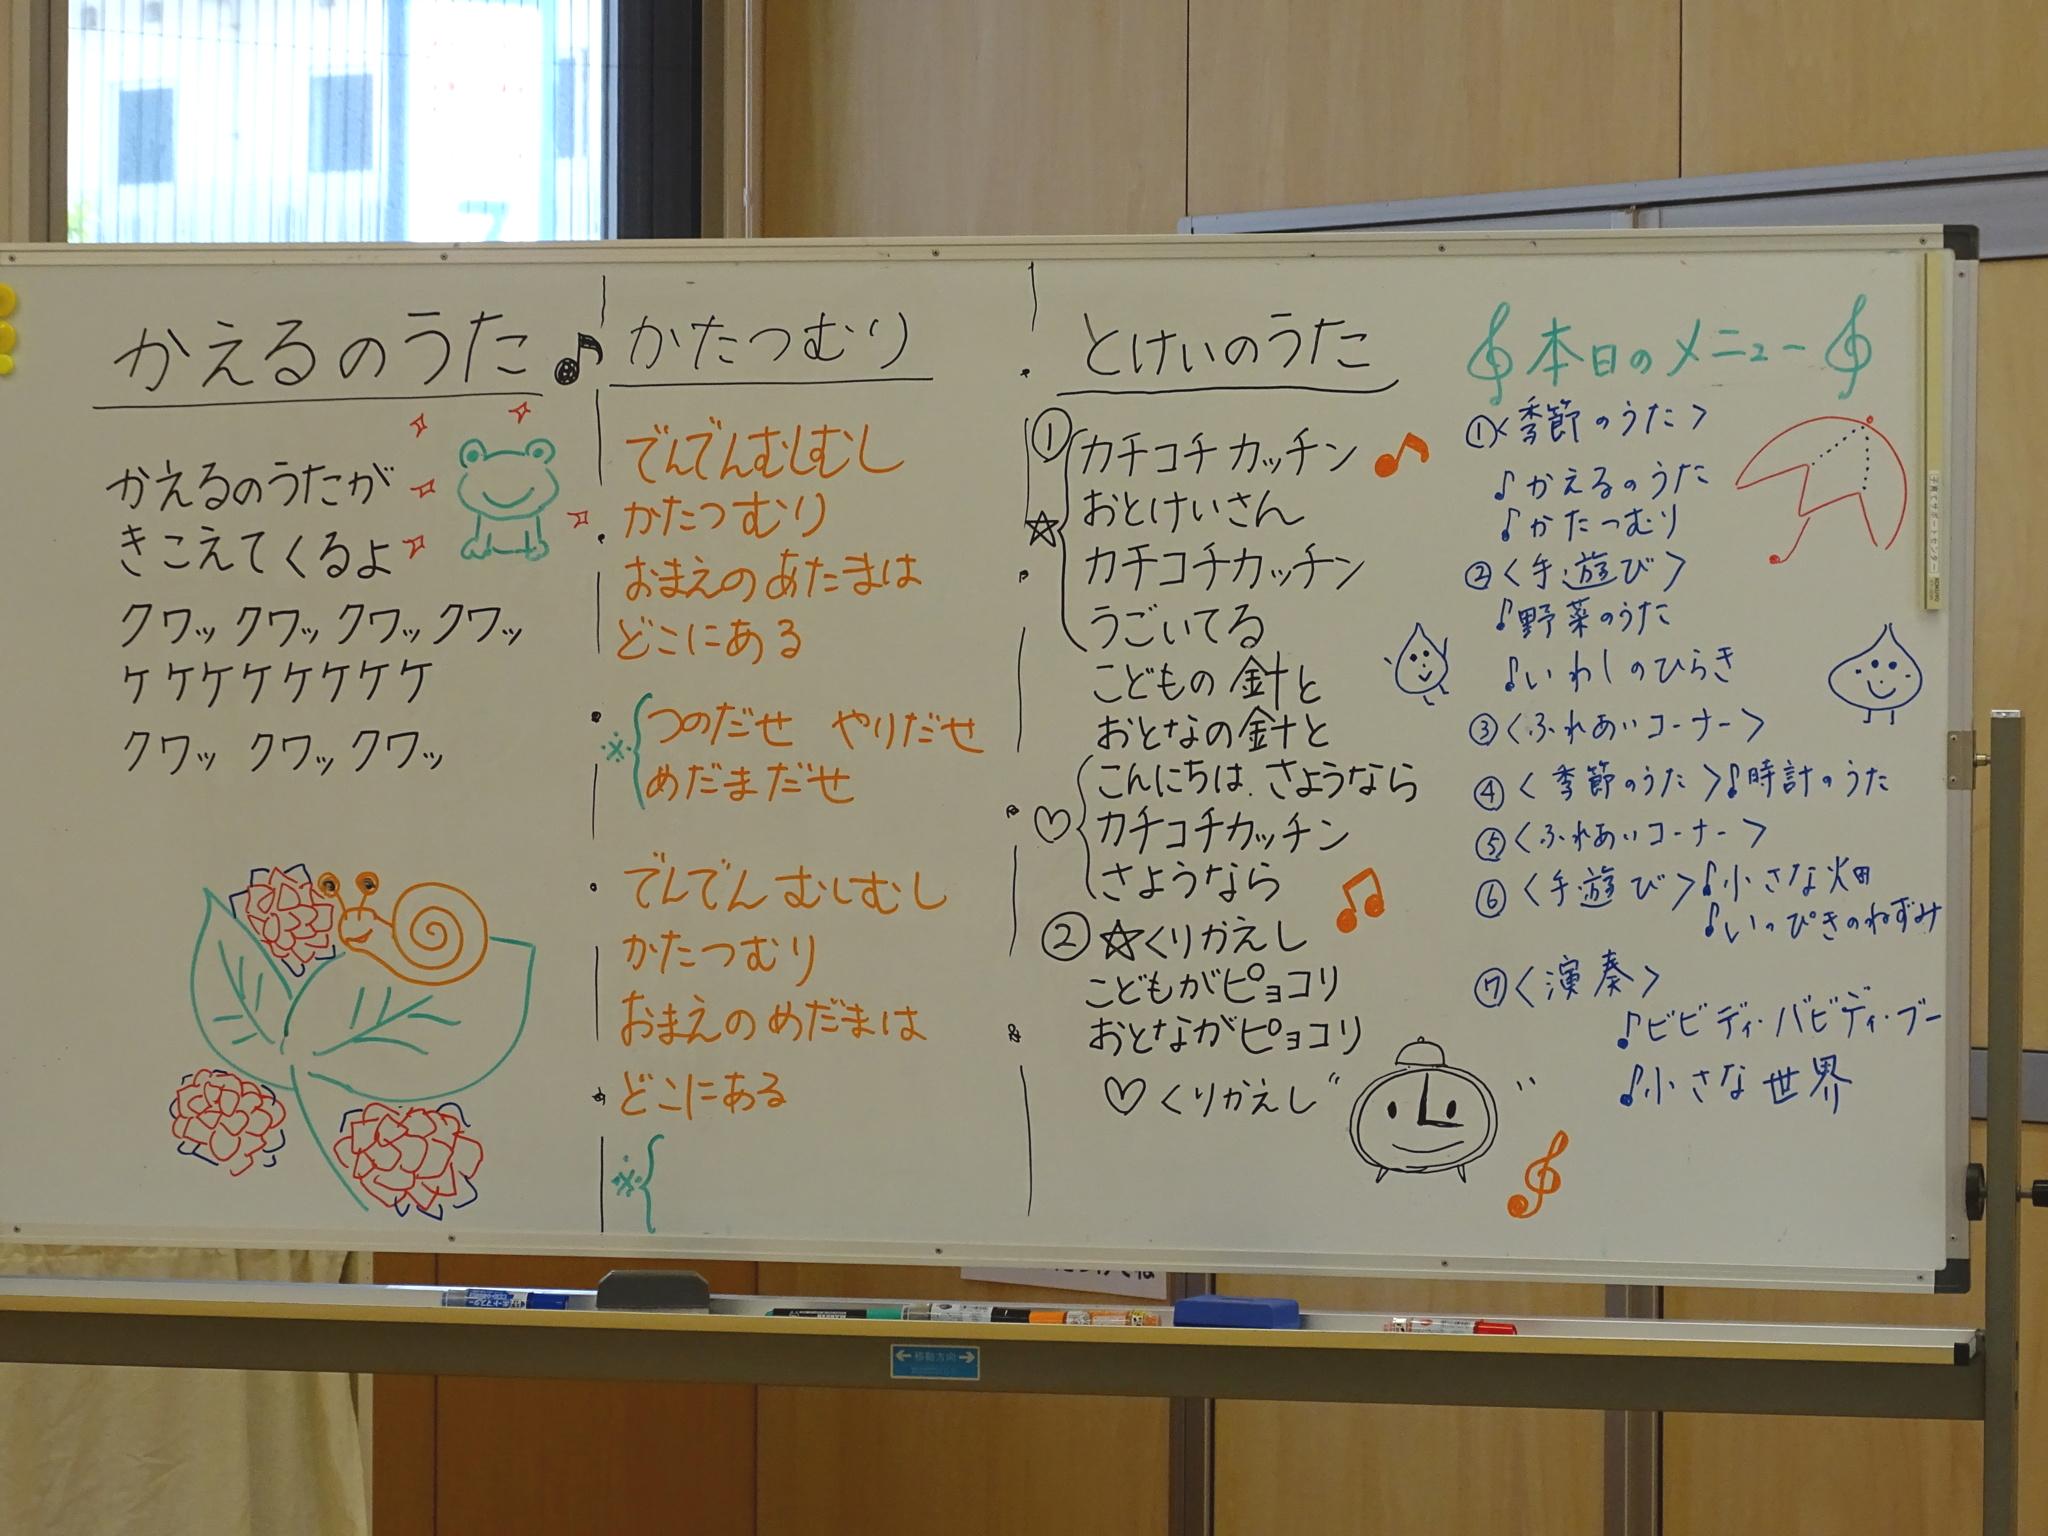 かえるのうた
かえるのうたが
きこえてくるよ
クワッ クワッ クワッ クワッ
ケケケケケケケケ
クワッ クワックワッ
かたつむり
でんでんむしむし
かたつむり
おまえのあたまは
どこにある
※つのだせ やりだせ
めだまだせ
でんでんむしむし
かたつむり
おまえのめだまは
どこにある
※
とけいのうた
① カチコチカッチン
おとけいさん
☆
カチコチカッチン
うごいてる
こどもの針と
おとなの針と
こんにちは、さようなら
♡ カチコチカッチン
さようなら
② ☆くりかえし
こどもがピョコリ
おとながピョコリ
♡くりかえし
本日のメニュー
①〈季節のうた〉
♪かえるのうた
♪かたつむり
②〈手遊び〉
♪野菜のうた
♪いわしのひらき
③〈ふれあいコーナー〉
④〈季節のうた〉♪時計のうた
⑤〈ふれあいコーナー〉
⑥〈手遊び〉♪小さな畑
♪いっぴきのねずみ
⑦〈演奏〉
♪ビビディ・バビディ・ブー
♪小さな世界
←移動方向→